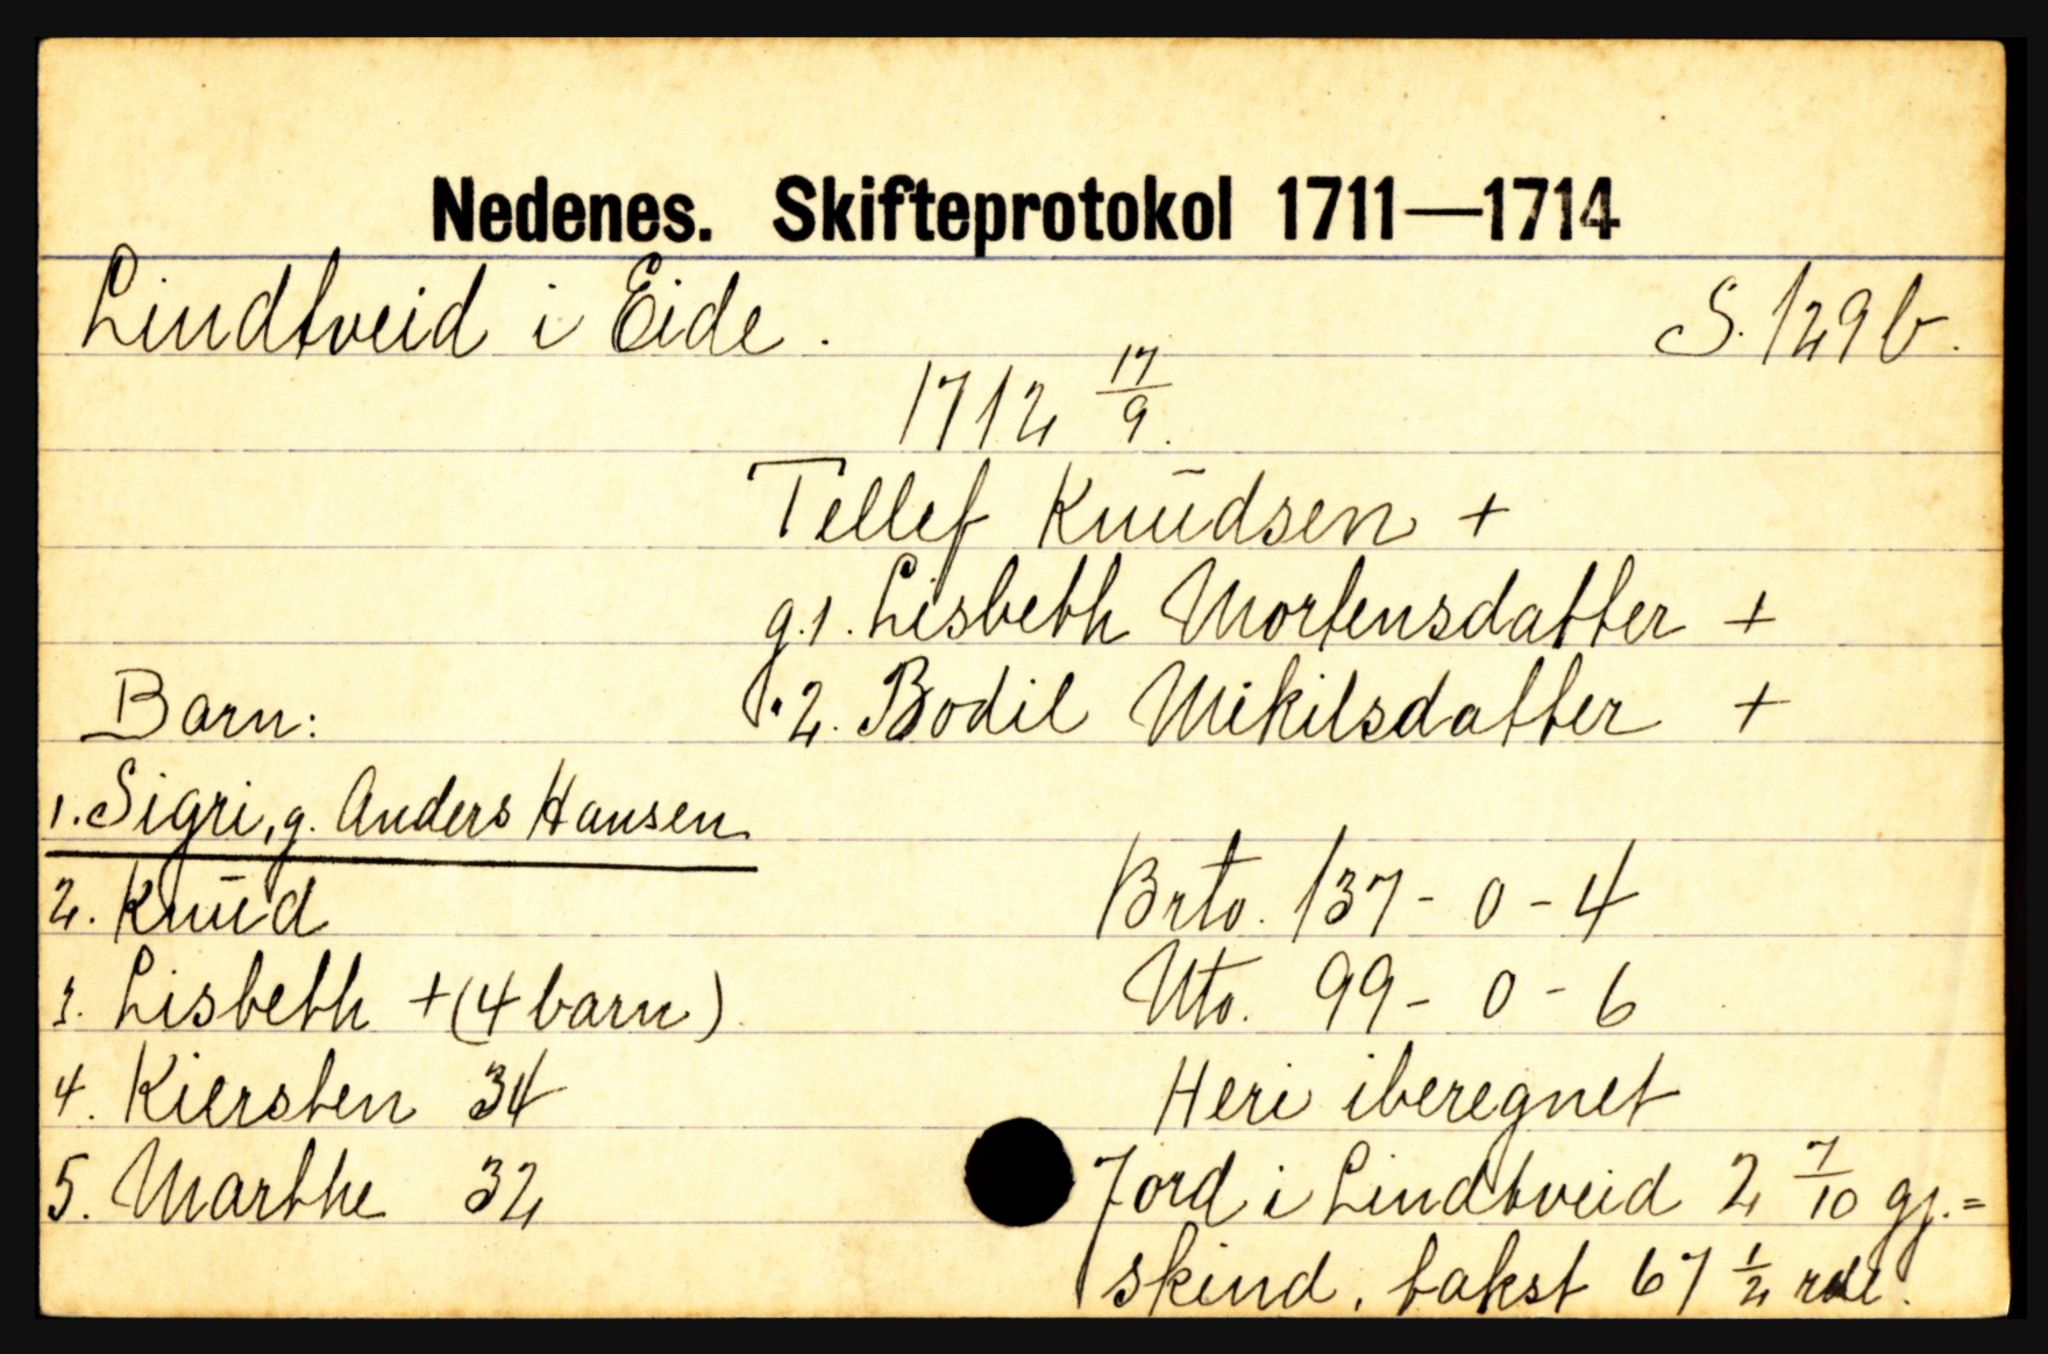 Nedenes. Skifteprotokol 1711—1714
Lindtveid i Eide. S. 129 b.
1712 17/9.
Tellef Knudsen +
g.1. Lisbeth Mortensdatter +
" 2. Bodil Mikilsdatter +
Barn:
1. Sigri, g. Anders Hansen
2. Knud
3. Lisbeth + (4 barn)
4. Kiersten 34
5. Marthe 32
Brto. 137 - 0 - 4
Nto. 99 - 0 - 6
Heri iberegnet
Jord i Lindtveid 2 7/10 gj.=
skind, takst 67 1/2 rdl.